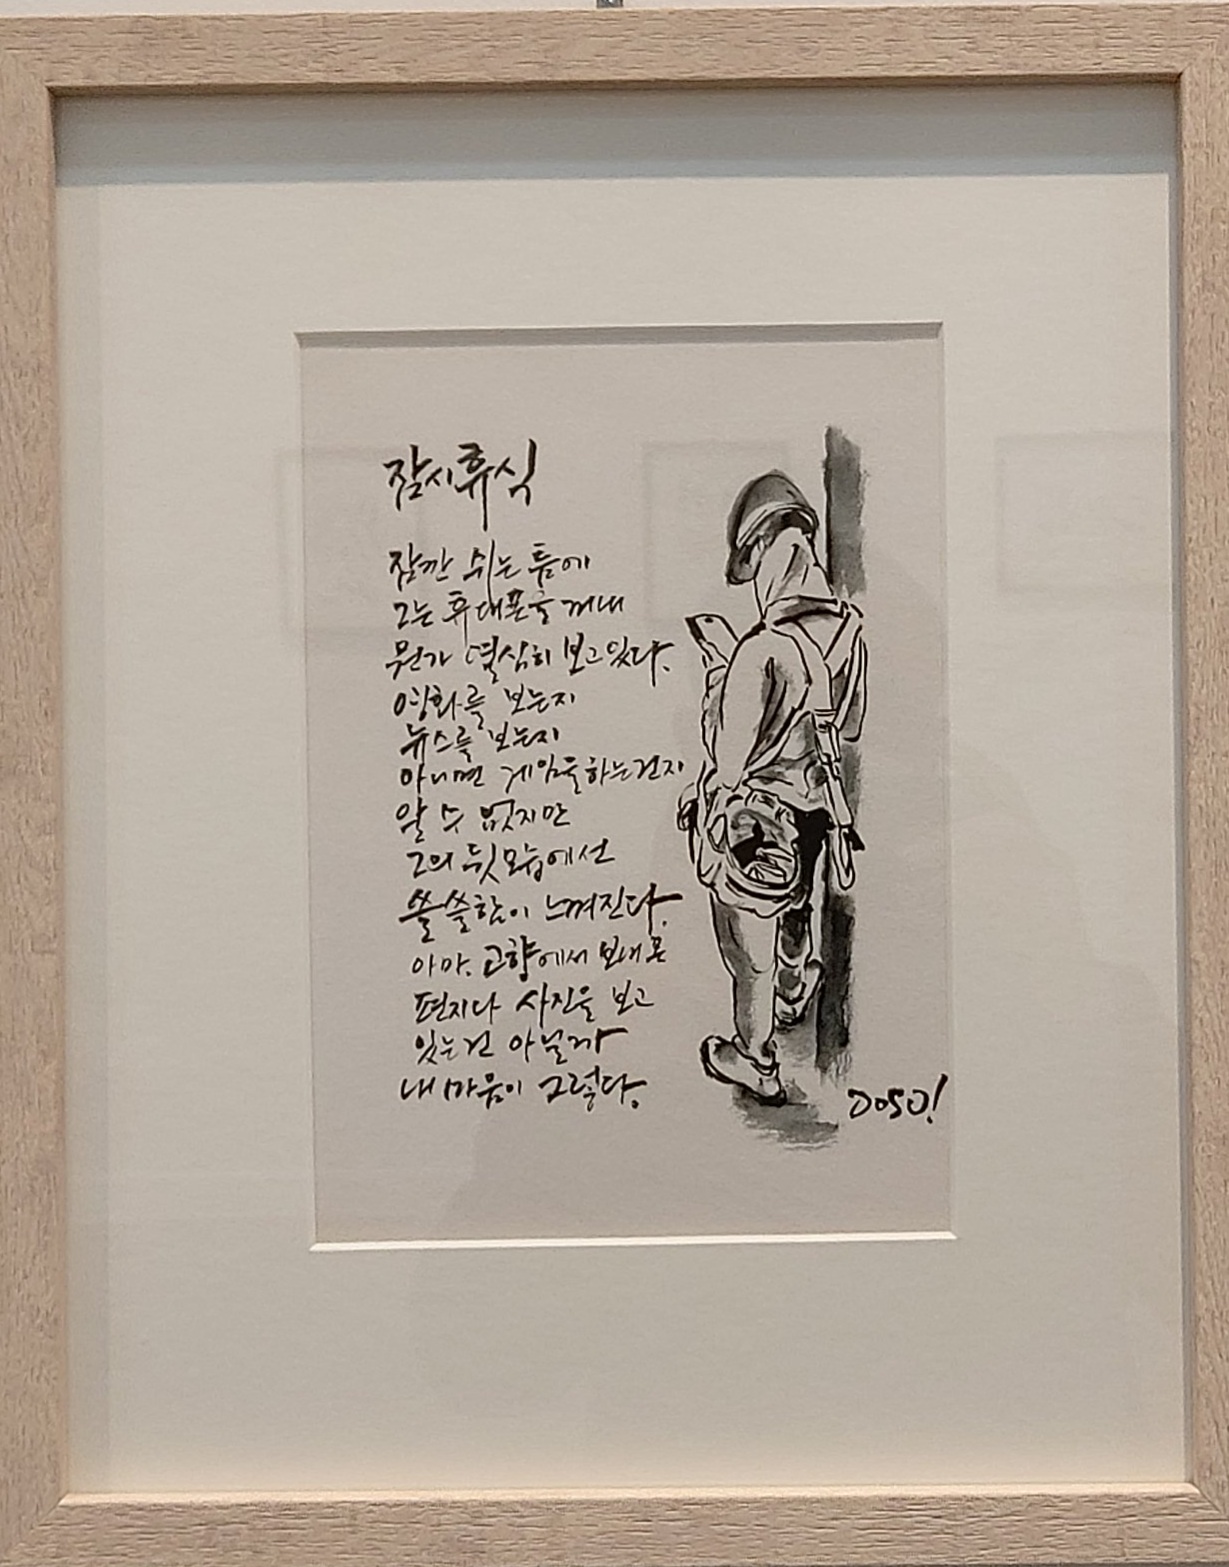 잠시휴식
잠깐 쉬는 틈에
그는 휴대폰을 꺼내
뭔가 열심히 보고있다.
영화를 보는지
뉴스를 보는지
아니면 게임을하는건지
알 수 없지만
그의 뒷모습에선
쓸쓸함이 느껴진다.
아마. 고향에서 보내온
편지나 사진을 보고
있는건 아닐까
내 마음이 그렇다.
DOSO!